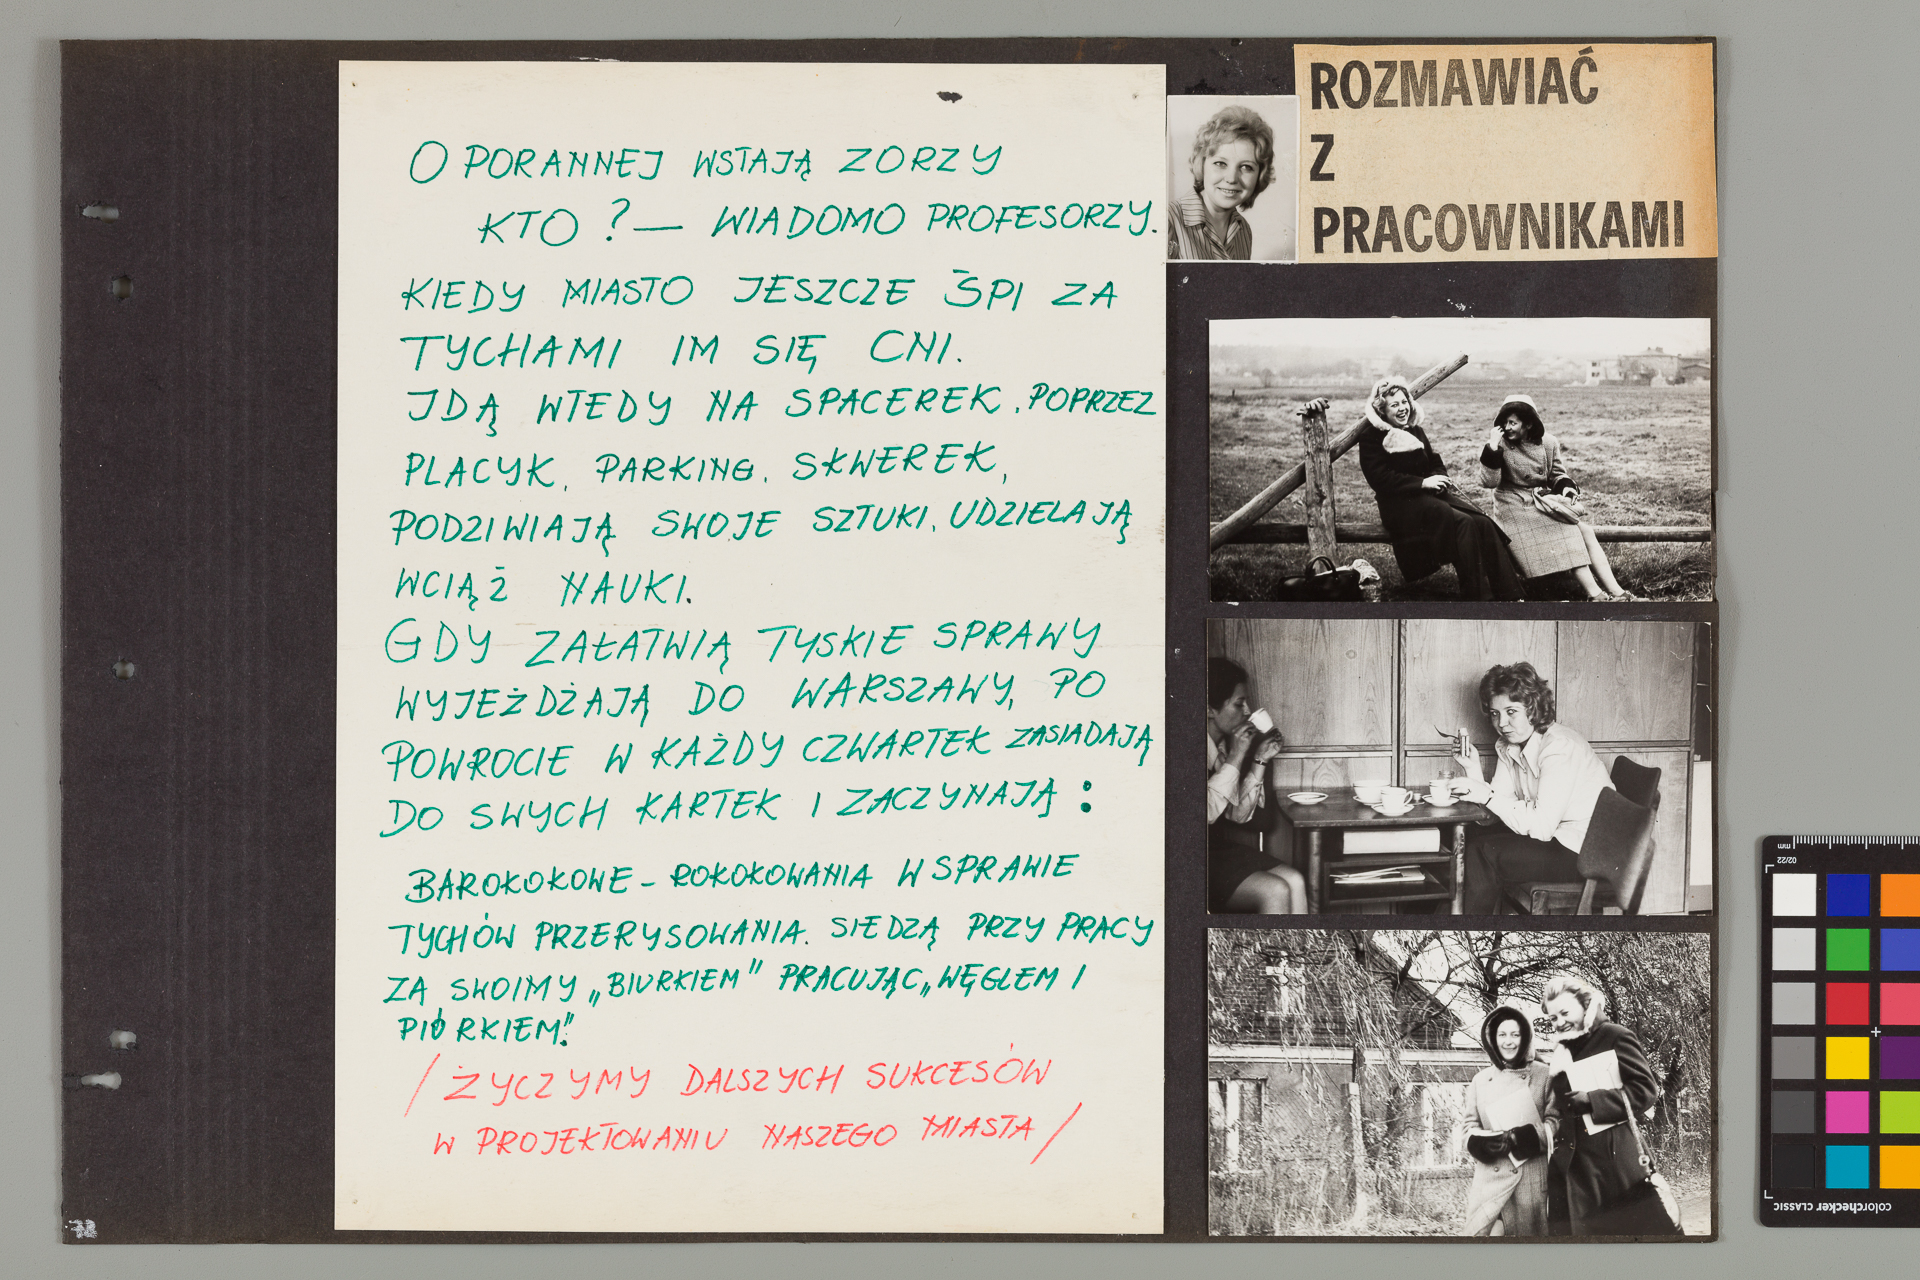 O PORANNEJ WSTAJĄ ZORZY
KTO ? — WIADOMO PROFESORZY.
KIEDY MIASTO JESZCZE ŚPI ZA
TYCHAMI IM SIĘ CNI.
IDĄ WTEDY NA SPACEREK, POPRZEZ
PLACYK, PARKING, SKWEREK,
PODZIWIAJĄ SWOJE SZTUKI, UDZIELAJĄ
WCIĄŻ NAUKI.
GDY ZAŁATWIĄ TYSKIE SPRAWY
WYJEŻDŻAJĄ DO WARSZAWY, PO
POWROCIE W KAŻDY CZWARTEK ZASIADAJĄ
DO SWYCH KARTEK I ZACZYNAJĄ :
BAROKOKOWE - ROKOKOWANIA W SPRAWIE
TYCHÓW PRZERYSOWANIA. SIEDZĄ PRZY PRACY
ZA SWOIMY „BIURKIEM" PRACUJĄC „WĘGLEM I
PIÓRKIEM".
/ ŻYCZYMY DALSZYCH SUKCESÓW
W PROJEKTOWANIU NASZEGO MIASTA /
ROZMAWIAĆ
Z
PRACOWNIKAMI
mm
02/22
colorchecker CLASSIC